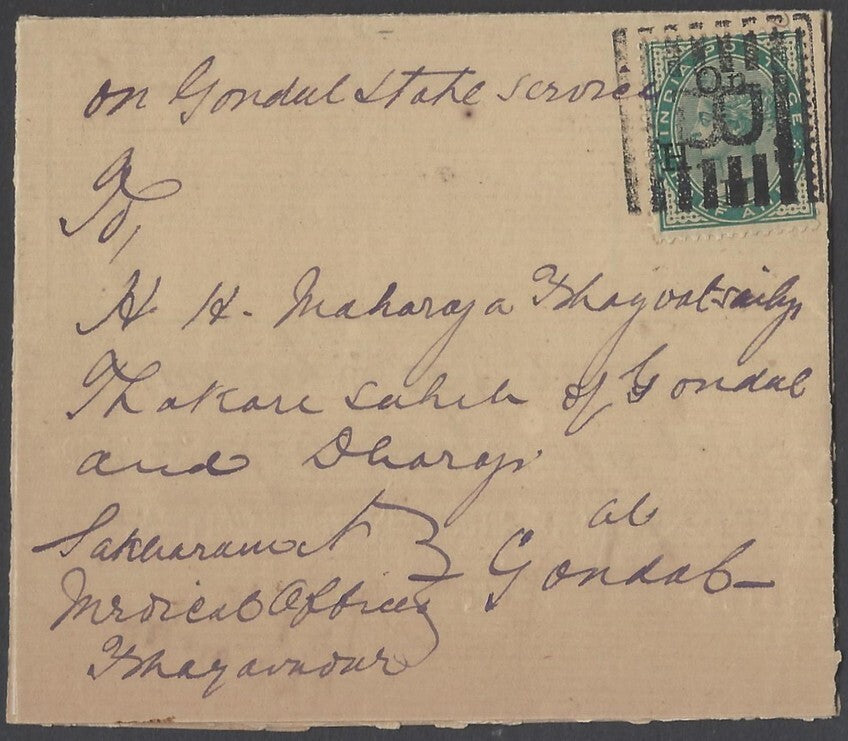 on Gondal state service
To,
H H. Maharaja Bhagvatsinhji
Thakore saheb of Gondal
and Dhoraji
at
Gondal
Sakharam
Medical Officer
On
H
INDIA POSTAGE